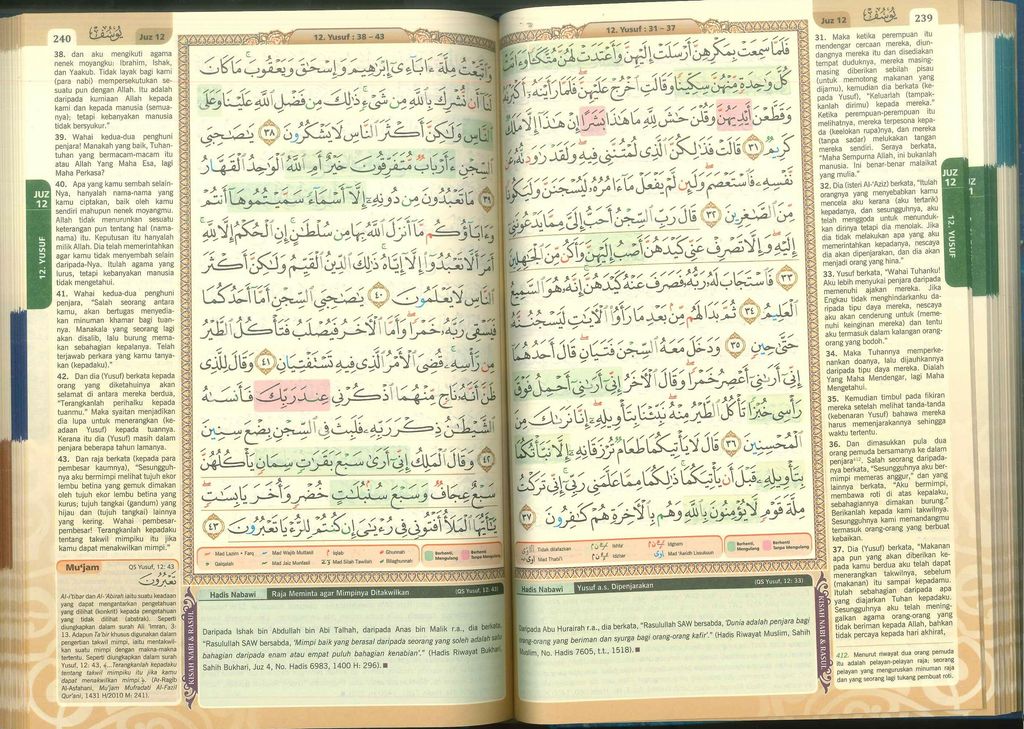 Juz 12
يوسف
239
12. Yusuf : 31 - 37
فَلَمَّا سَمِعَتْ بِمَكْرِهِنَّ أَرْسَلَتْ إِلَيْهِنَّ وَأَعْتَدَتْ لَهُنَّ مُتَّكَـًٔا وَءَاتَتْ
كُلَّ وَٰحِدَةٍ مِّنْهُنَّ سِكِّينًا وَقَالَتِ ٱخْرُجْ عَلَيْهِنَّ فَلَمَّا رَأَيْنَهُۥٓ أَكْبَرْنَهُۥ
وَقَطَّعْنَ أَيْدِيَهُنَّ وَقُلْنَ حَٰشَ لِلَّهِ مَا هَٰذَا بَشَرًا إِنْ هَٰذَآ إِلَّا مَلَكٌ
كَرِيمٌ ٣١ قَالَتْ فَذَٰلِكُنَّ ٱلَّذِى لُمْتُنَّنِى فِيهِ وَلَقَدْ رَٰوَدتُّهُۥ عَن
نَّفْسِهِۦ فَٱسْتَعْصَمَ وَلَئِن لَّمْ يَفْعَلْ مَآ ءَامُرُهُۥ لَيُسْجَنَنَّ وَلَيَكُونًا
مِّنَ ٱلصَّٰغِرِينَ ٣٢ قَالَ رَبِّ ٱلسِّجْنُ أَحَبُّ إِلَىَّ مِمَّا يَدْعُونَنِىٓ
إِلَيْهِ وَإِلَّا تَصْرِفْ عَنِّى كَيْدَهُنَّ أَصْبُ إِلَيْهِنَّ وَأَكُن مِّنَ ٱلْجَٰهِلِينَ
٣٣ فَٱسْتَجَابَ لَهُۥ رَبُّهُۥ فَصَرَفَ عَنْهُ كَيْدَهُنَّ إِنَّهُۥ هُوَ ٱلسَّمِيعُ
ٱلْعَلِيمُ ٣٤ ثُمَّ بَدَا لَهُم مِّنۢ بَعْدِ مَا رَأَوُا۟ ٱلْءَايَٰتِ لَيَسْجُنُنَّهُۥ
حَتَّىٰ حِينٍ ٣٥ وَدَخَلَ مَعَهُ ٱلسِّجْنَ فَتَيَانِ قَالَ أَحَدُهُمَآ
إِنِّىٓ أَرَىٰنِىٓ أَعْصِرُ خَمْرًا وَقَالَ ٱلْءَاخَرُ إِنِّىٓ أَرَىٰنِىٓ أَحْمِلُ فَوْقَ
رَأْسِى خُبْزًا تَأْكُلُ ٱلطَّيْرُ مِنْهُ نَبِّئْنَا بِتَأْوِيلِهِۦٓ إِنَّا نَرَىٰكَ مِنَ
ٱلْمُحْسِنِينَ ٣٦ قَالَ لَا يَأْتِيكُمَا طَعَامٌ تُرْزَقَانِهِۦٓ إِلَّا نَبَّأْتُكُمَا
بِتَأْوِيلِهِۦ قَبْلَ أَن يَأْتِيَكُمَا ذَٰلِكُمَا مِمَّا عَلَّمَنِى رَبِّىٓ إِنِّى تَرَكْتُ
مِلَّةَ قَوْمٍ لَّا يُؤْمِنُونَ بِٱللَّهِ وَهُم بِٱلْءَاخِرَةِ هُمْ كَٰفِرُونَ ٣٧
Tidak dilafazkan
Mad Thabi'i
Ikhfa'
Izhar
Idgham
Mad 'Aaridh Lissukuun
Berhenti, Mengulang
Berhenti Tanpa Mengulang
Hadis Nabawi
Yusuf a.s. Dipenjarakan
(QS Yusuf, 12: 33)
Daripada Abu Hurairah r.a., dia berkata, "Rasulullah SAW bersabda, 'Dunia adalah penjara bagi
orang-orang yang beriman dan syurga bagi orang-orang kafir'." (Hadis Riwayat Muslim, Sahih
Muslim, No. Hadis 7605, t.t., 1518).
KISAH NABI & RASUL
31. Maka ketika perempuan itu
mendengar cercaan mereka, diun-
dangnya mereka itu dan disediakan
tempat duduknya, mereka masing-
masing diberikan sebilah pisau
(untuk memotong makanan yang
dijamu), kemudian dia berkata (ke-
pada Yusuf), "Keluarlah (tampak-
kanlah dirimu) kepada mereka."
Ketika perempuan-perempuan itu
melihatnya, mereka terpesona kepa-
da (keelokan rupa)nya, dan mereka
(tanpa sadar) melukakan tangan
mereka sendiri. Seraya berkata,
"Maha Sempurna Allah, ini bukanlah
manusia. Ini benar-benar malaikat
yang mulia."
32. Dia (isteri Al-'Aziz) berkata, "Itulah
orangnya yang menyebabkan kamu
mencela aku kerana (aku tertarik)
kepadanya, dan sesungguhnya, aku
telah menggoda untuk menunduk-
kan dirinya tetapi dia menolak. Jika
dia tidak melakukan apa yang aku
memerintahkan kepadanya, nescaya
dia akan dipenjarakan, dan dia akan
menjadi orang yang hina."
33. Yusuf berkata, "Wahai Tuhanku!
Aku lebih menyukai penjara daripada
memenuhi ajakan mereka. Jika
Engkau tidak menghindarkanku da-
ripada tipu daya mereka, nescaya
aku akan cenderung untuk (meme-
nuhi keinginan mereka) dan tentu
aku termasuk dalam kalangan orang-
orang yang bodoh."
34. Maka Tuhannya memperke-
nankan doanya, lalu dijauhkannya
daripada tipu daya mereka. Dialah
Yang Maha Mendengar, lagi Maha
Mengetahui.
35. Kemudian timbul pada fikiran
mereka setelah melihat tanda-tanda
(kebenaran Yusuf) bahawa mereka
harus memenjarakannya sehingga
waktu tertentu.
36. Dan dimasukkan pula dua
orang pemuda bersamanya ke dalam
penjara⁴¹². Salah seorang daripada-
nya berkata, "Sesungguhnya aku ber-
mimpi memeras anggur," dan yang
lainnya berkata, "Aku bermimpi,
membawa roti di atas kepalaku,
sebahagiannya dimakan burung."
Berikanlah kepada kami takwilnya.
Sesungguhnya kami memandangmu
termasuk orang-orang yang berbuat
kebaikan.
37. Dia (Yusuf) berkata, "Makanan
apa pun yang akan diberikan ke-
pada kamu berdua aku telah dapat
menerangkan takwilnya, sebelum
(makanan) itu sampai kepadamu.
Itulah sebahagian daripada apa
yang diajarkan Tuhan kepadaku.
Sesungguhnya aku telah mening-
galkan agama orang-orang yang
tidak beriman kepada Allah, bahkan
tidak percaya kepada hari akhirat,
412. Menurut riwayat dua orang pemuda
itu adalah pelayan-pelayan raja; seorang
pelayan yang menguruskan minuman raja
dan yang seorang lagi tukang pembuat roti.
JUZ
12
12. YUSUF
240
يوسف
Juz 12
12. Yusuf : 38 - 43
وَٱتَّبَعْتُ مِلَّةَ ءَابَآءِىٓ إِبْرَٰهِيمَ وَإِسْحَٰقَ وَيَعْقُوبَ مَا كَانَ
لَنَآ أَن نُّشْرِكَ بِٱللَّهِ مِن شَىْءٍ ذَٰلِكَ مِن فَضْلِ ٱللَّهِ عَلَيْنَا وَعَلَى
ٱلنَّاسِ وَلَٰكِنَّ أَكْثَرَ ٱلنَّاسِ لَا يَشْكُرُونَ ٣٨ يَٰصَٰحِبَىِ
ٱلسِّجْنِ ءَأَرْبَابٌ مُّتَفَرِّقُونَ خَيْرٌ أَمِ ٱللَّهُ ٱلْوَٰحِدُ ٱلْقَهَّارُ
٣٩ مَا تَعْبُدُونَ مِن دُونِهِۦٓ إِلَّآ أَسْمَآءً سَمَّيْتُمُوهَآ أَنتُمْ
وَءَابَآؤُكُم مَّآ أَنزَلَ ٱللَّهُ بِهَا مِن سُلْطَٰنٍ إِنِ ٱلْحُكْمُ إِلَّا لِلَّهِ
أَمَرَ أَلَّا تَعْبُدُوٓا۟ إِلَّآ إِيَّاهُ ذَٰلِكَ ٱلدِّينُ ٱلْقَيِّمُ وَلَٰكِنَّ أَكْثَرَ
ٱلنَّاسِ لَا يَعْلَمُونَ ٤٠ يَٰصَٰحِبَىِ ٱلسِّجْنِ أَمَّآ أَحَدُكُمَا
فَيَسْقِى رَبَّهُۥ خَمْرًا وَأَمَّا ٱلْءَاخَرُ فَيُصْلَبُ فَتَأْكُلُ ٱلطَّيْرُ
مِن رَّأْسِهِۦ قُضِىَ ٱلْأَمْرُ ٱلَّذِى فِيهِ تَسْتَفْتِيَانِ ٤١ وَقَالَ لِلَّذِى
ظَنَّ أَنَّهُۥ نَاجٍ مِّنْهُمَا ٱذْكُرْنِى عِندَ رَبِّكَ فَأَنسَىٰهُ
ٱلشَّيْطَٰنُ ذِكْرَ رَبِّهِۦ فَلَبِثَ فِى ٱلسِّجْنِ بِضْعَ سِنِينَ
٤٢ وَقَالَ ٱلْمَلِكُ إِنِّىٓ أَرَىٰ سَبْعَ بَقَرَٰتٍ سِمَانٍ يَأْكُلُهُنَّ
سَبْعٌ عِجَافٌ وَسَبْعَ سُنۢبُلَٰتٍ خُضْرٍ وَأُخَرَ يَابِسَٰتٍ
يَٰٓأَيُّهَا ٱلْمَلَأُ أَفْتُونِى فِى رُءْيَٰىَ إِن كُنتُمْ لِلرُّءْيَا تَعْبُرُونَ ٤٣
Mad Lazim • Farq
Qalqalah
Mad Wajib Muttasil
Mad Jaiz Munfasil
Iqlab
Mad Silah Tawilah
Ghunnah
Bilaghunnah
Berhenti, Mengulang
Berhenti Tanpa Mengulang
Hadis Nabawi
Raja Meminta agar Mimpinya Ditakwilkan
(QS Yusuf, 12: 43)
Daripada Ishak bin Abdullah bin Abi Talhah, daripada Anas bin Malik r.a., dia berkata,
"Rasulullah SAW bersabda, 'Mimpi baik yang berasal daripada seorang yang soleh adalah satu
bahagian daripada enam atau empat puluh bahagian kenabian'." (Hadis Riwayat Bukhari,
Sahih Bukhari, Juz 4, No. Hadis 6983, 1400 H: 296).
KISAH NABI & RASUL
38. dan aku mengikuti agama
nenek moyangku: Ibrahim, Ishak,
dan Yaakub. Tidak layak bagi kami
(para nabi) mempersekutukan se-
suatu pun dengan Allah. Itu adalah
daripada kurniaan Allah kepada
kami dan kepada manusia (semua-
nya); tetapi kebanyakan manusia
tidak bersyukur."
39. Wahai kedua-dua penghuni
penjara! Manakah yang baik, Tuhan-
tuhan yang bermacam-macam itu
atau Allah Yang Maha Esa, lagi
Maha Perkasa?
40. Apa yang kamu sembah selain-
Nya, hanyalah nama-nama yang
kamu ciptakan, baik oleh kamu
sendiri mahupun nenek moyangmu.
Allah tidak menurunkan sesuatu
keterangan pun tentang hal (nama-
nama) itu. Keputusan itu hanyalah
milik Allah. Dia telah memerintahkan
agar kamu tidak menyembah selain
daripada-Nya. Itulah agama yang
lurus, tetapi kebanyakan manusia
tidak mengetahui.
41. Wahai kedua-dua penghuni
penjara, "Salah seorang antara
kamu, akan bertugas menyedia-
kan minuman khamar bagi tuan-
nya. Manakala yang seorang lagi
akan disalib, lalu burung mema-
kan sebahagian kepalanya. Telah
terjawab perkara yang kamu tanya-
kan (kepadaku)."
42. Dan dia (Yusuf) berkata kepada
orang yang diketahuinya akan
selamat di antara mereka berdua,
"Terangkanlah perihalku kepada
tuanmu." Maka syaitan menjadikan
dia lupa untuk menerangkan (ke-
adaan Yusuf) kepada tuannya.
Kerana itu dia (Yusuf) masih dalam
penjara beberapa tahun lamanya.
43. Dan raja berkata (kepada para
pembesar kaumnya), "Sesungguh-
nya aku bermimpi melihat tujuh ekor
lembu betina yang gemuk dimakan
oleh tujuh ekor lembu betina yang
kurus; tujuh tangkai (gandum) yang
hijau dan (tujuh tangkai) lainnya
yang kering. Wahai pembesar-
pembesar! Terangkanlah kepadaku
tentang takwil mimpiku itu jika
kamu dapat menakwilkan mimpi."
Mu'jam
QS Yusuf, 12: 43
تَعْبُرُونَ
Al-I'tibar dan Al-'Abirah iaitu suatu keadaan
yang dapat mengantarkan pengetahuan
yang dilihat (konkrit) kepada pengetahuan
yang tidak dilihat (abstrak). Seperti
diungkapkan dalam surah Ali 'Imran, 3:
13. Adapun Ta'bir khusus digunakan dalam
pengertian takwil mimpi, iaitu mentakwil-
kan suatu mimpi dengan makna-makna
tertentu. Seperti diungkapkan dalam surah
Yusuf, 12: 43, ...Terangkanlah kepadaku
tentang takwil mimpiku itu jika kamu
dapat menakwilkan mimpi. (Ar-Ragib
Al-Asfahani, Mu'jam Mufradati Al-Fazil
Qur'ani, 1431 H/2010 M: 241).
JUZ
12
12. YUSUF